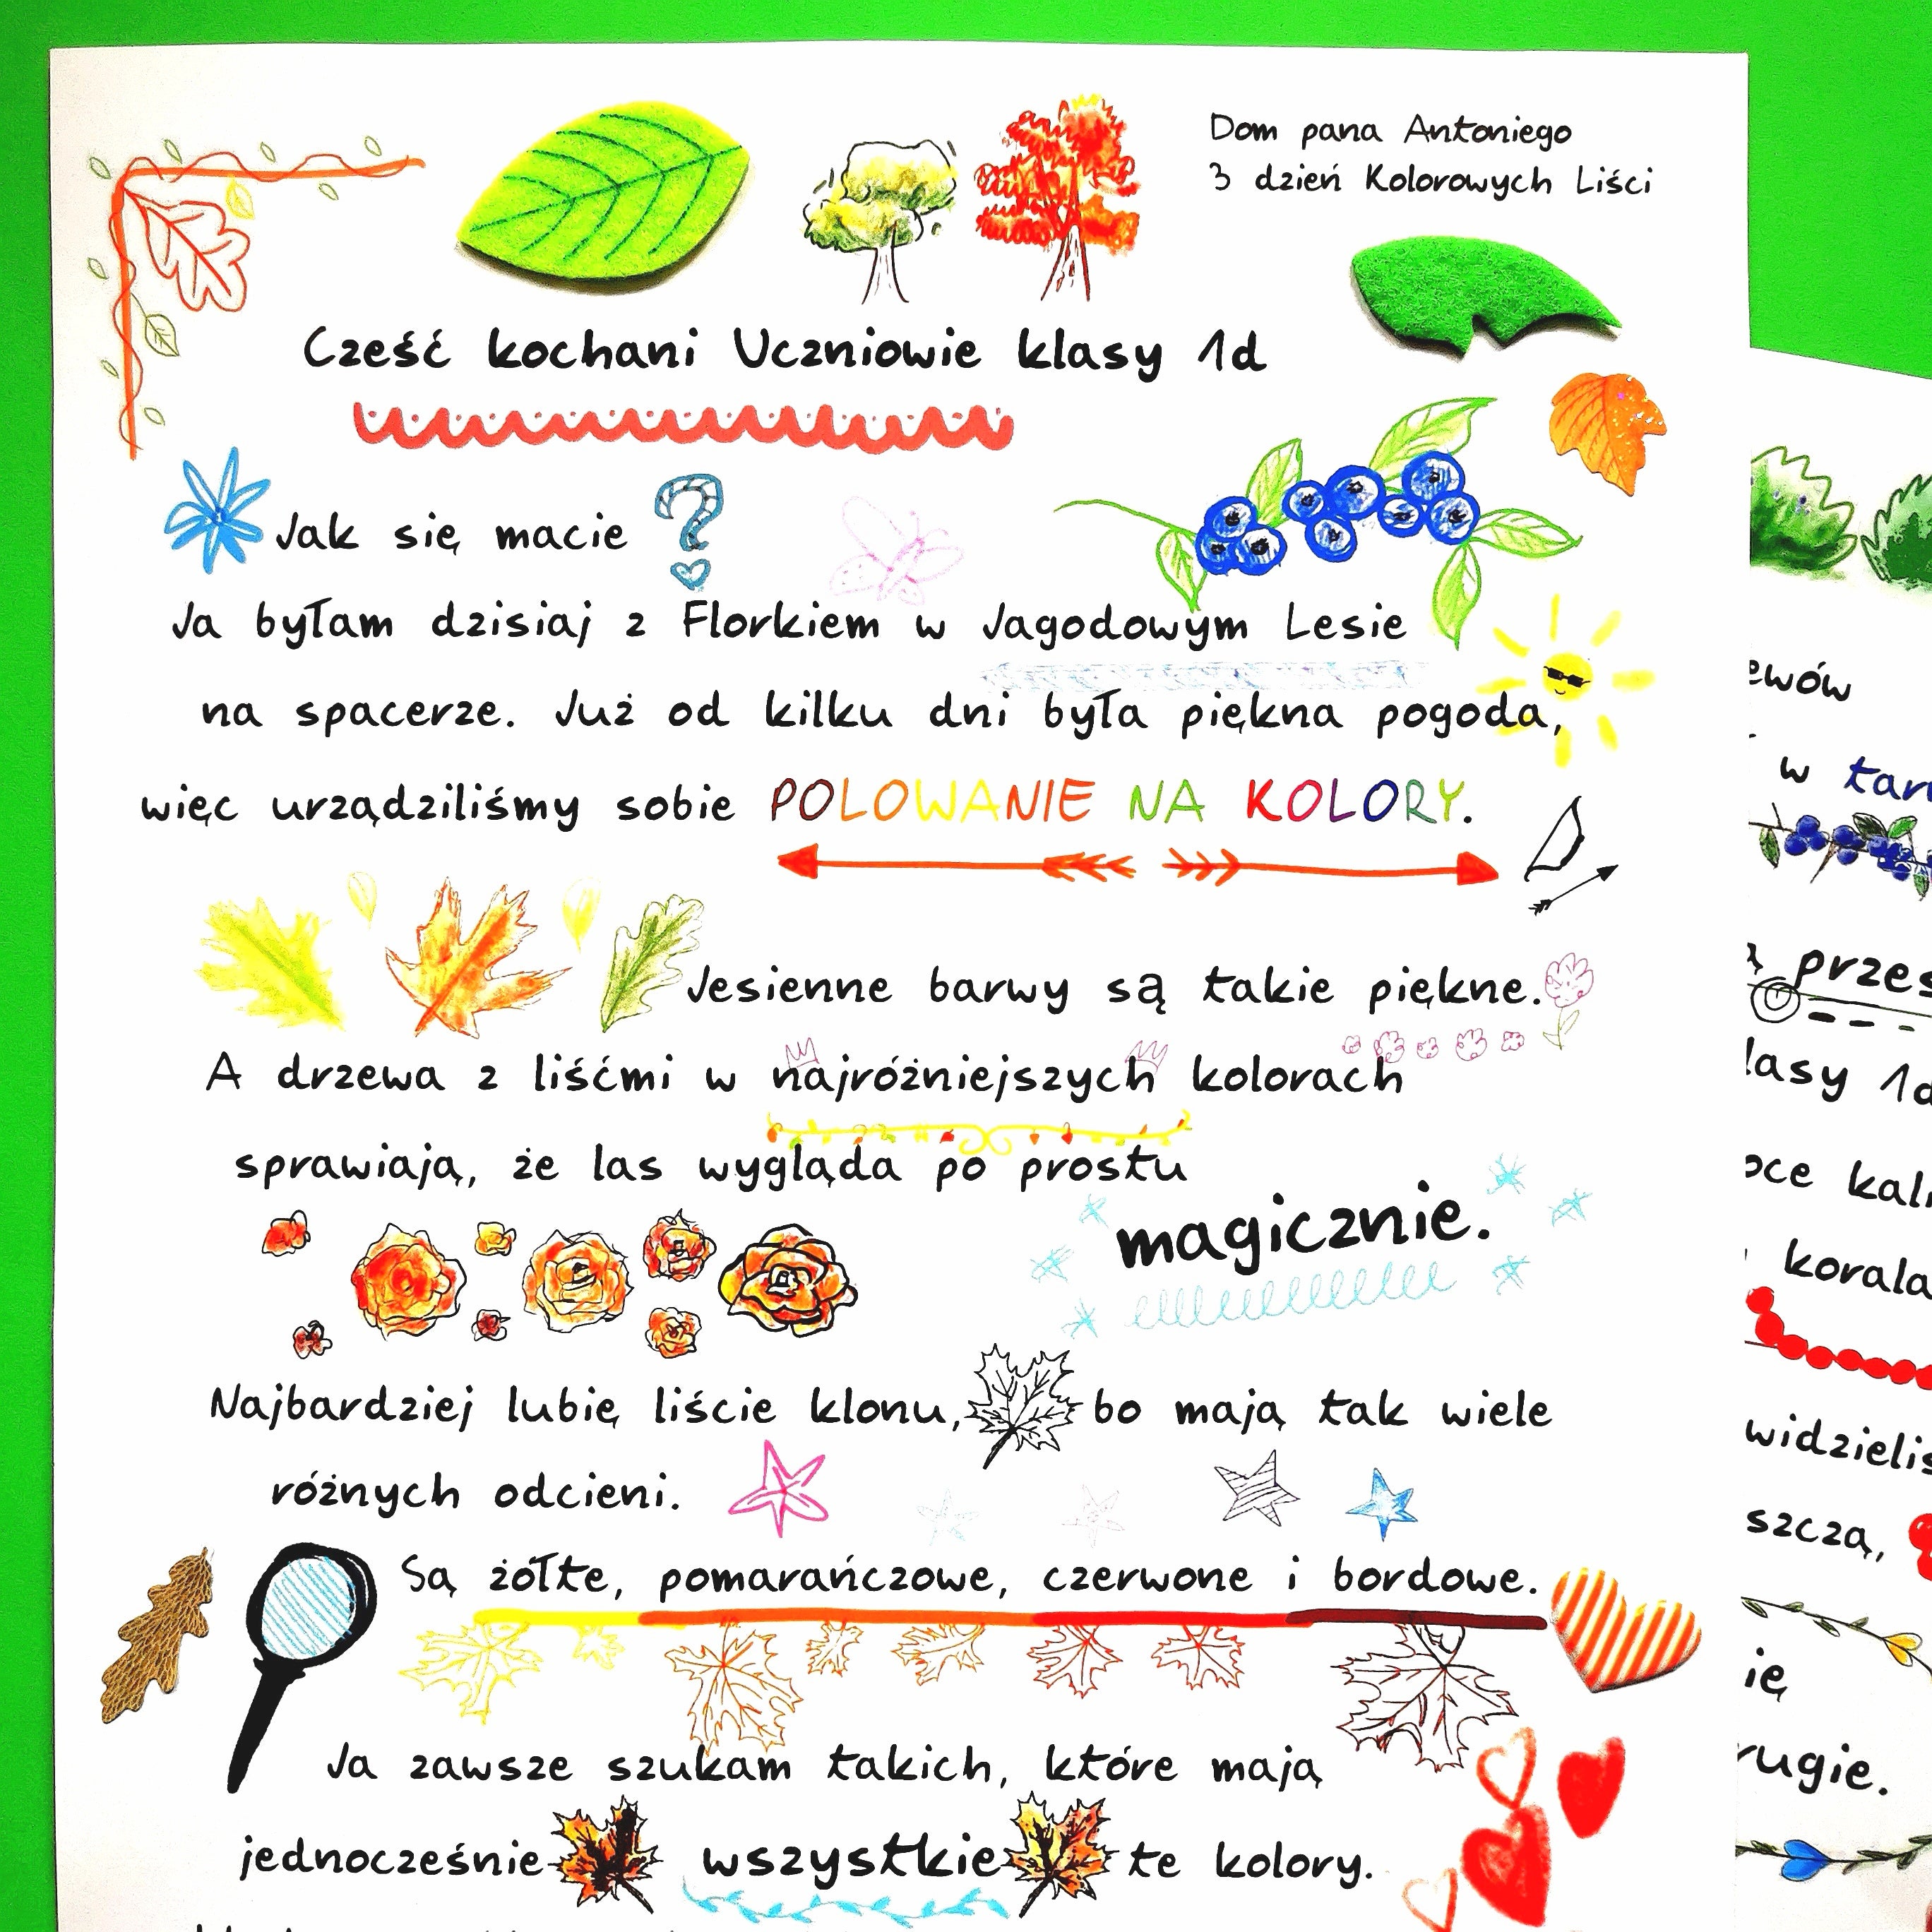 Dom pana Antoniego
3 dzień Kolorowych Liści
Cześć kochani Uczniowie klasy 1d
Jak się macie ?
Ja byłam dzisiaj z Florkiem w Jagodowym Lesie
na spacerze. Już od kilku dni była piękna pogoda,
więc urządziliśmy sobie POLOWANIE NA KOLORY.
Jesienne barwy są takie piękne.
A drzewa z liśćmi w najróżniejszych kolorach
sprawiają, że las wygląda po prostu
magicznie.
Najbardziej lubię liście klonu, bo mają tak wiele
różnych odcieni.
Są żółte, pomarańczowe, czerwone i bordowe.
Ja zawsze szukam takich, które mają
jednocześnie wszystkie te kolory.
w
przes
lasy 1d
korala
widzieliś
szczą,